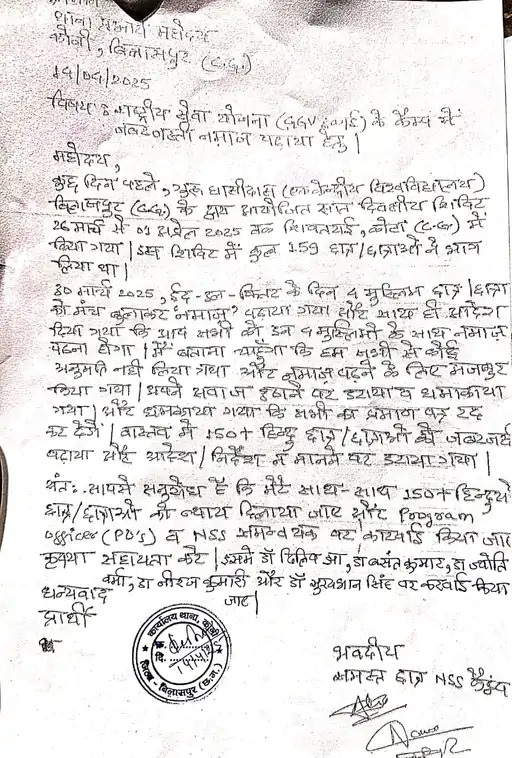 थाना प्रभारी महोदय
कोनी, बिलासपुर (C.G.)
14/04/2025
विषय : राष्ट्रीय सेवा योजना (GGV इकाई) के कैम्प में
जबरजस्ती नमाज पढ़ाया हेतु |
महोदय,
कुछ दिन पहले, गुरु घासीदास (एक केन्द्रीय विश्वविद्यालय)
बिलासपुर (C.G.) के द्वारा आयोजित सात दिवसीय शिविर
26 मार्च से 01 अप्रैल 2025 तक शिवतराई, कोटा (C.G.) में
किया गया | इस शिविर में कुल 159 छात्र/छात्राओं ने भाग
लिया था |
30 मार्च 2025, ईद-उल-फितर के दिन 4 मुस्लिम छात्र/छात्रा
को मंच बुलाकर नमाज पढ़ाया गया और साथ ही आदेश
दिया गया कि आप सभी को इन 4 मुस्लिमों के साथ नमाज
पढ़ना होगा | मैं बताना चाहूँगा कि हम सभी से कोई
अनुमति नहीं लिया गया और नमाज पढ़ने के लिए मजबूर
किया गया | अपने आवाज उठाने पर डराया व धमकाया
गया | और धमकाया गया कि सभी का प्रमाण पत्र रद्द
कर देंगे | वास्तव में 150+ हिन्दू छात्र/छात्राओं को जबरजस्ती
पढ़ाया और आदेश/निर्देश न मानने पर डराया गया |
अंत:- आपसे अनुरोध है कि मेरे साथ-साथ 150+ हिन्दुओं
छात्र/छात्राओं को न्याय दिलाया जाए और Program
officer (PO's) व NSS समन्वयक पर कार्यवाई किया जाए
कृपया सहायता करें | इसमें डॉ दिलिप झा, डा बसंत कुमार, डा ज्योति
वर्मा, डा नीरज कुमारी और डॉ सूर्यभान सिंह पर करवाई किया
जाए |
धन्यवाद
प्रार्थी
कार्यालय थाना, कोनी
जिला - बिलासपुर (छ.ग.)
भवदीय
समस्त छात्र NSS कैम्प